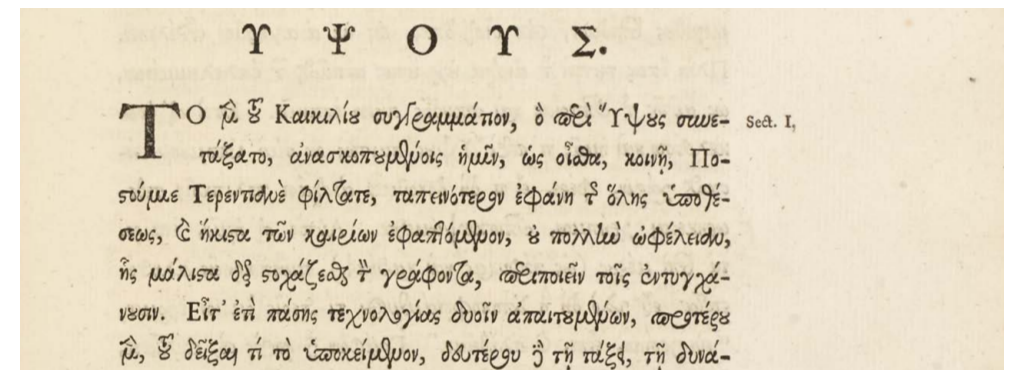 ΥΨΟΥΣ.
ΤΟ μὲν τοῦ Καικιλίου συγγραμμάτιον, ὃ περὶ Ὕψους συνε- Sect. I,
τάξατο, ἀνασκοπουμένοις ἡμῖν, ὡς οἶσθα, κοινῇ, Πο-
στούμιε Τερεντιανὲ φίλτατε, ταπεινότερον ἐφάνη τῆς ὅλης ὑποθέ-
σεως, καὶ ἥκιστα τῶν καιρίων ἐφαπτόμενον, οὐ πολλὴν ὠφέλειαν,
ἧς μάλιστα δεῖ στοχάζεσθαι τὸν γράφοντα, περιποιεῖν τοῖς ἐντυγχά-
νουσιν. Εἶτ' ἐπὶ πάσης τεχνολογίας δυοῖν ἀπαιτουμένων, προτέρου
μὲν, τοῦ δεῖξαι τί τὸ ὑποκείμενον, δευτέρου δὲ τῇ τάξει, τῇ δυνά-